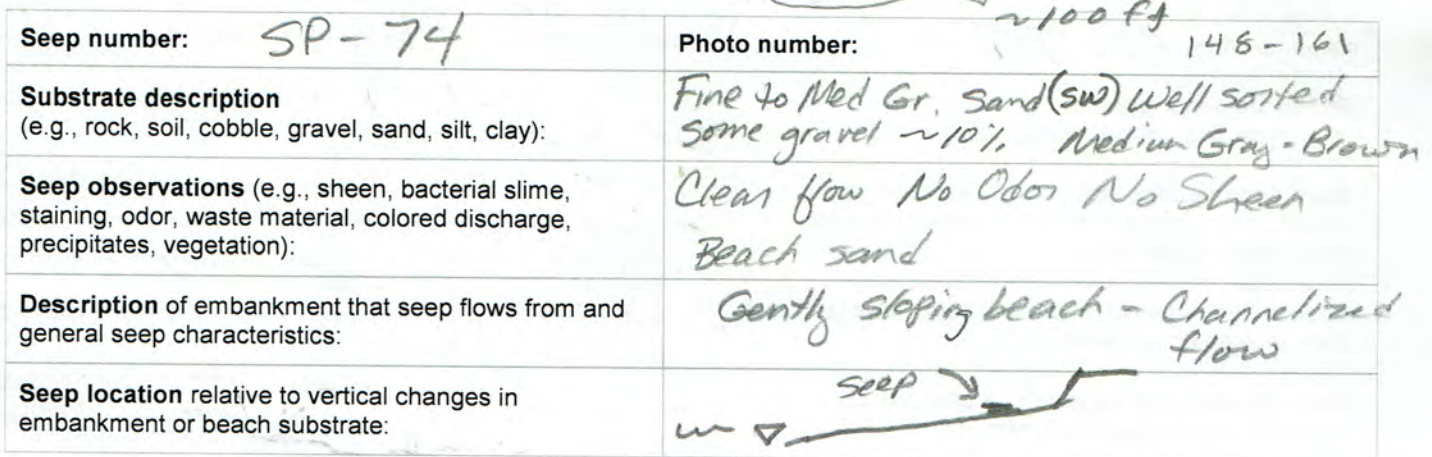 ~100 ft
Seep number: SP-74
Photo number: 148-161
Substrate description
(e.g., rock, soil, cobble, gravel, sand, silt, clay):
Fine to Med Gr. Sand (SW) Well sorted
Some gravel ~10% Medium Gray-Brown
Seep observations (e.g., sheen, bacterial slime,
staining, odor, waste material, colored discharge,
precipitates, vegetation):
Clear flow No Odor No Sheen
Beach sand
Description of embankment that seep flows from and
general seep characteristics:
Gently sloping beach - Channelized
flow
Seep location relative to vertical changes in
embankment or beach substrate:
Seep